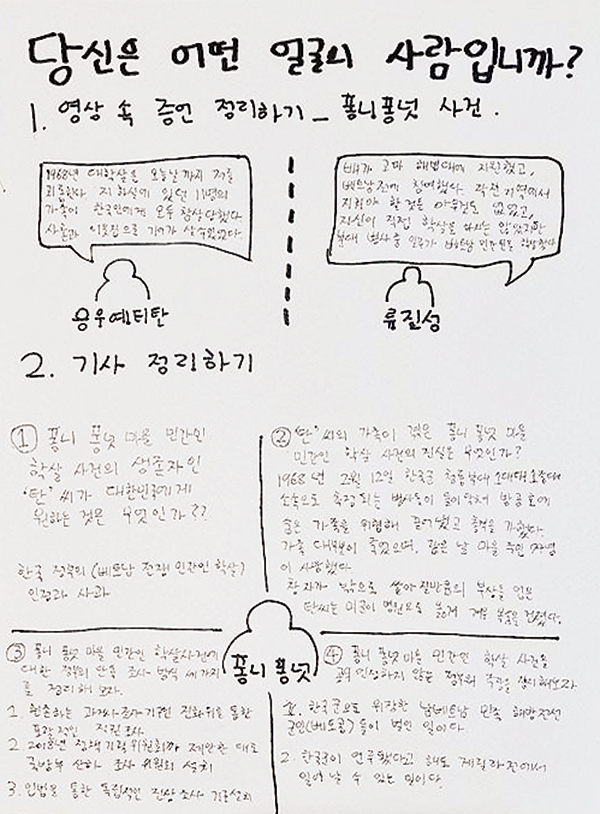 당신은 어떤 얼굴의 사람입니까?
1. 영상 속 증언 정리하기 _ 퐁니퐁넛 사건.
1968년 대학살은 오늘날까지 저를
괴롭힌다. 지하실에 있던 11명의
가족이 한국인에게 모두 학살당했다.
사과와 인정으로
배가 고파 해병대에 지원했고,
베트남전에 참여했다. 작전지역에서
지켜야 할 것은 아무것도 없었고,
자신이 직접 학살을 하지는 않았지만
부대 병사 중 일부가 베트남 민간인을
응우옌티탄
류진성
2. 기사 정리하기
① 퐁니 퐁넛 마을 민간인
학살 사건의 생존자인
'탄'씨가 대한민국에게
원하는 것은 무엇인가??
한국 정부의 (베트남 전쟁 민간인 학살)
인정과 사과
② '탄'씨의 가족이 겪은 퐁니 퐁넛 마을
민간인 학살 사건의 진실은 무엇인가?
1968년 2월 12일 한국군 청룡부대 1중대
소속으로 추정되는 병사들이 들이닥쳐 방공호에
숨은 가족을 위협해 끌어냈고 총격을 가했다.
가족 대부분이 죽었으며, 같은 날 마을 주민
이 사망했다.
창자가 밖으로 쏟아질만큼의 부상을 입은
탄씨는 미군이 병원으로 옮겨 겨우 목숨을 건졌다.
퐁니 퐁넛
③ 퐁니 퐁넛 마을 민간인 학살사건에
대한 정부의 조사 방식 세가지
를 정리해 보자.
1. 현존하는 과거사 조사기구인 진화위를 통한
직권조사
2. 2018년 정책기획위원회가 제안한 대로
국방부 산하 조사 위원회 설치
3. 입법을 통한 독립적인 진상조사 기구설치
④ 퐁니 퐁넛마을 민간인 학살 사건을
인정하지 않는 정부의 주장을 정리해보자
1. 한국군으로 위장한 남베트남 민족 해방전선
군인(베트콩)들이 벌인 일이다.
2. 한국군이 연루됐다고 해도 게릴라전에서
일어날 수 있는 일이다.